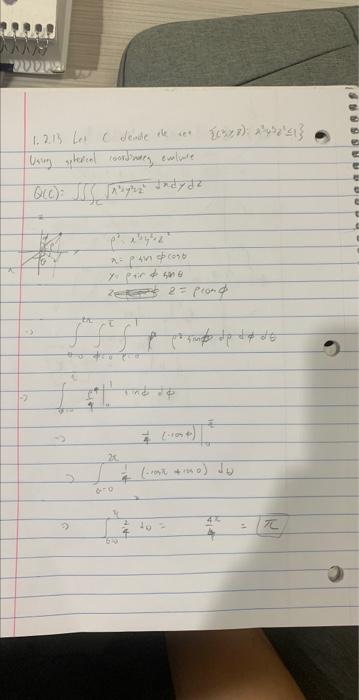 1.2.13 Let C denote the set {(x,y,z): x²+y²+z²≤1}
Using spherical coordinates, evaluate
Q(C) = ∫∫∫_C √x²+y²+z² dxdydz
=
ρ² = x²+y²+z²
x = ρ sin φ cos θ
y = ρ sin φ sin θ
z = ρ cos φ
→ ∫_{θ=0}^{2π} ∫_{φ=0}^{π} ∫_{ρ=0}^{1} ρ ρ² sin φ dρ dφ dθ
→ ∫_{φ=0}^{π} ρ⁴/4 |_0^1 sin φ dφ
→ 1/4 (-cos φ) |_0^π
→ ∫_{θ=0}^{2π} 1/4 (-cos π + cos 0) dθ
→ ∫_{θ=0}^{2π} 2/4 dθ = 4π/4 = π